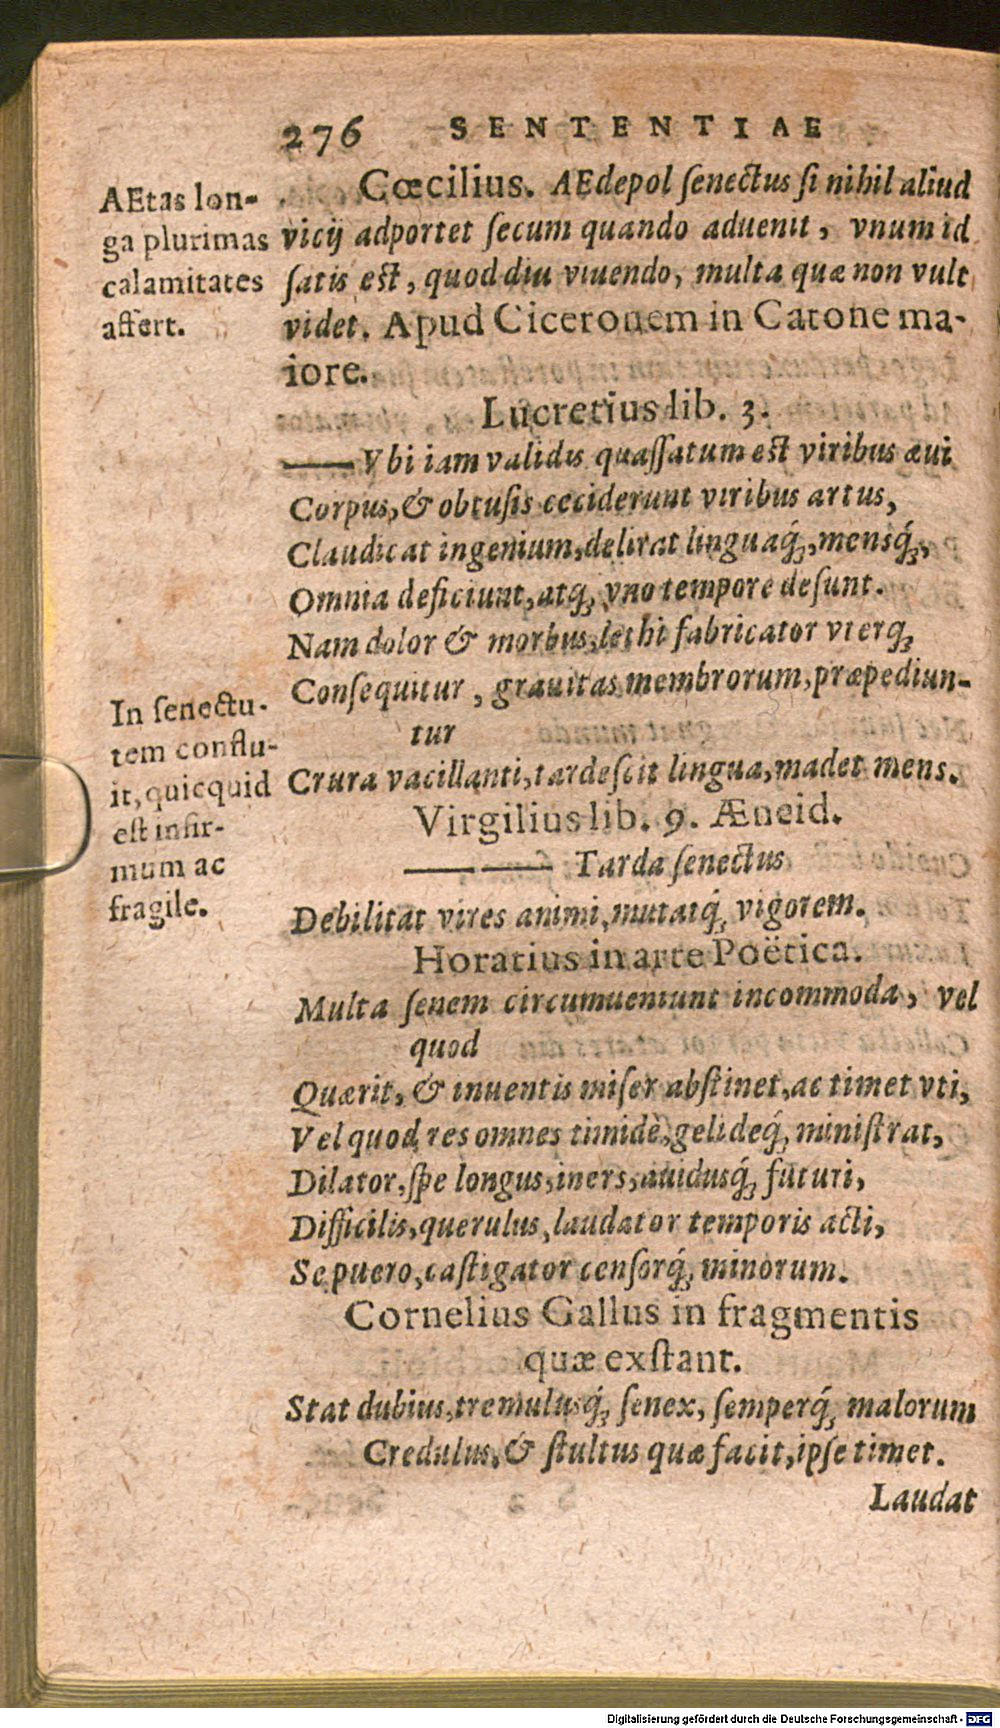 276 SENTENTIAE
AEtas lon-
ga plurimas
calamitates
affert.
Cœcilius. AEdepol ſenectus ſi nihil aliud
vicij adportet ſecum quando aduenit, vnum id
ſatis eſt, quod diu viuendo, multa quæ non vult
videt. Apud Ciceronem in Catone ma-
iore.
Lucretius lib. 3.
—— Vbi iam validis quaſſatum eſt viribus æui
Corpus, & obtuſis ceciderunt viribus artus,
Claudicat ingenium, delirat linguaq́;, mensq́;,
Omnia deficiunt, atq; vno tempore deſunt.
Nam dolor & morbus, lethi fabricator vterq;
Conſequitur, grauitas membrorum, præpediun-
tur
In ſenectu-
tem conflu-
it, quicquid
eſt infir-
mum ac
fragile.
Crura vacillanti, tardeſcit lingua, madet mens.
Virgilius lib. 9. Æneid.
—— —— Tarda ſenectus
Debilitat vires animi, mutatq́; vigorem.
Horatius in arte Poëtica.
Multa ſenem circumueniunt incommoda, vel
quod
Quærit, & inuentis miſer abſtinet, ac timet vti,
Vel quod res omnes timidè, gelideq́; miniſtrat,
Dilator, ſpe longus, iners, auidusq́; futuri,
Difficilis, querulus, laudator temporis acti,
Se puero, caſtigator cenſorq́; minorum.
Cornelius Gallus in fragmentis
quæ exſtant.
Stat dubius, tremulusq́; ſenex, ſemperq́; malorum
Credulus, & ſtultus quæ facit, ipſe timet.
Laudat
Digitalisierung gefördert durch die Deutsche Forschungsgemeinschaft - DFG